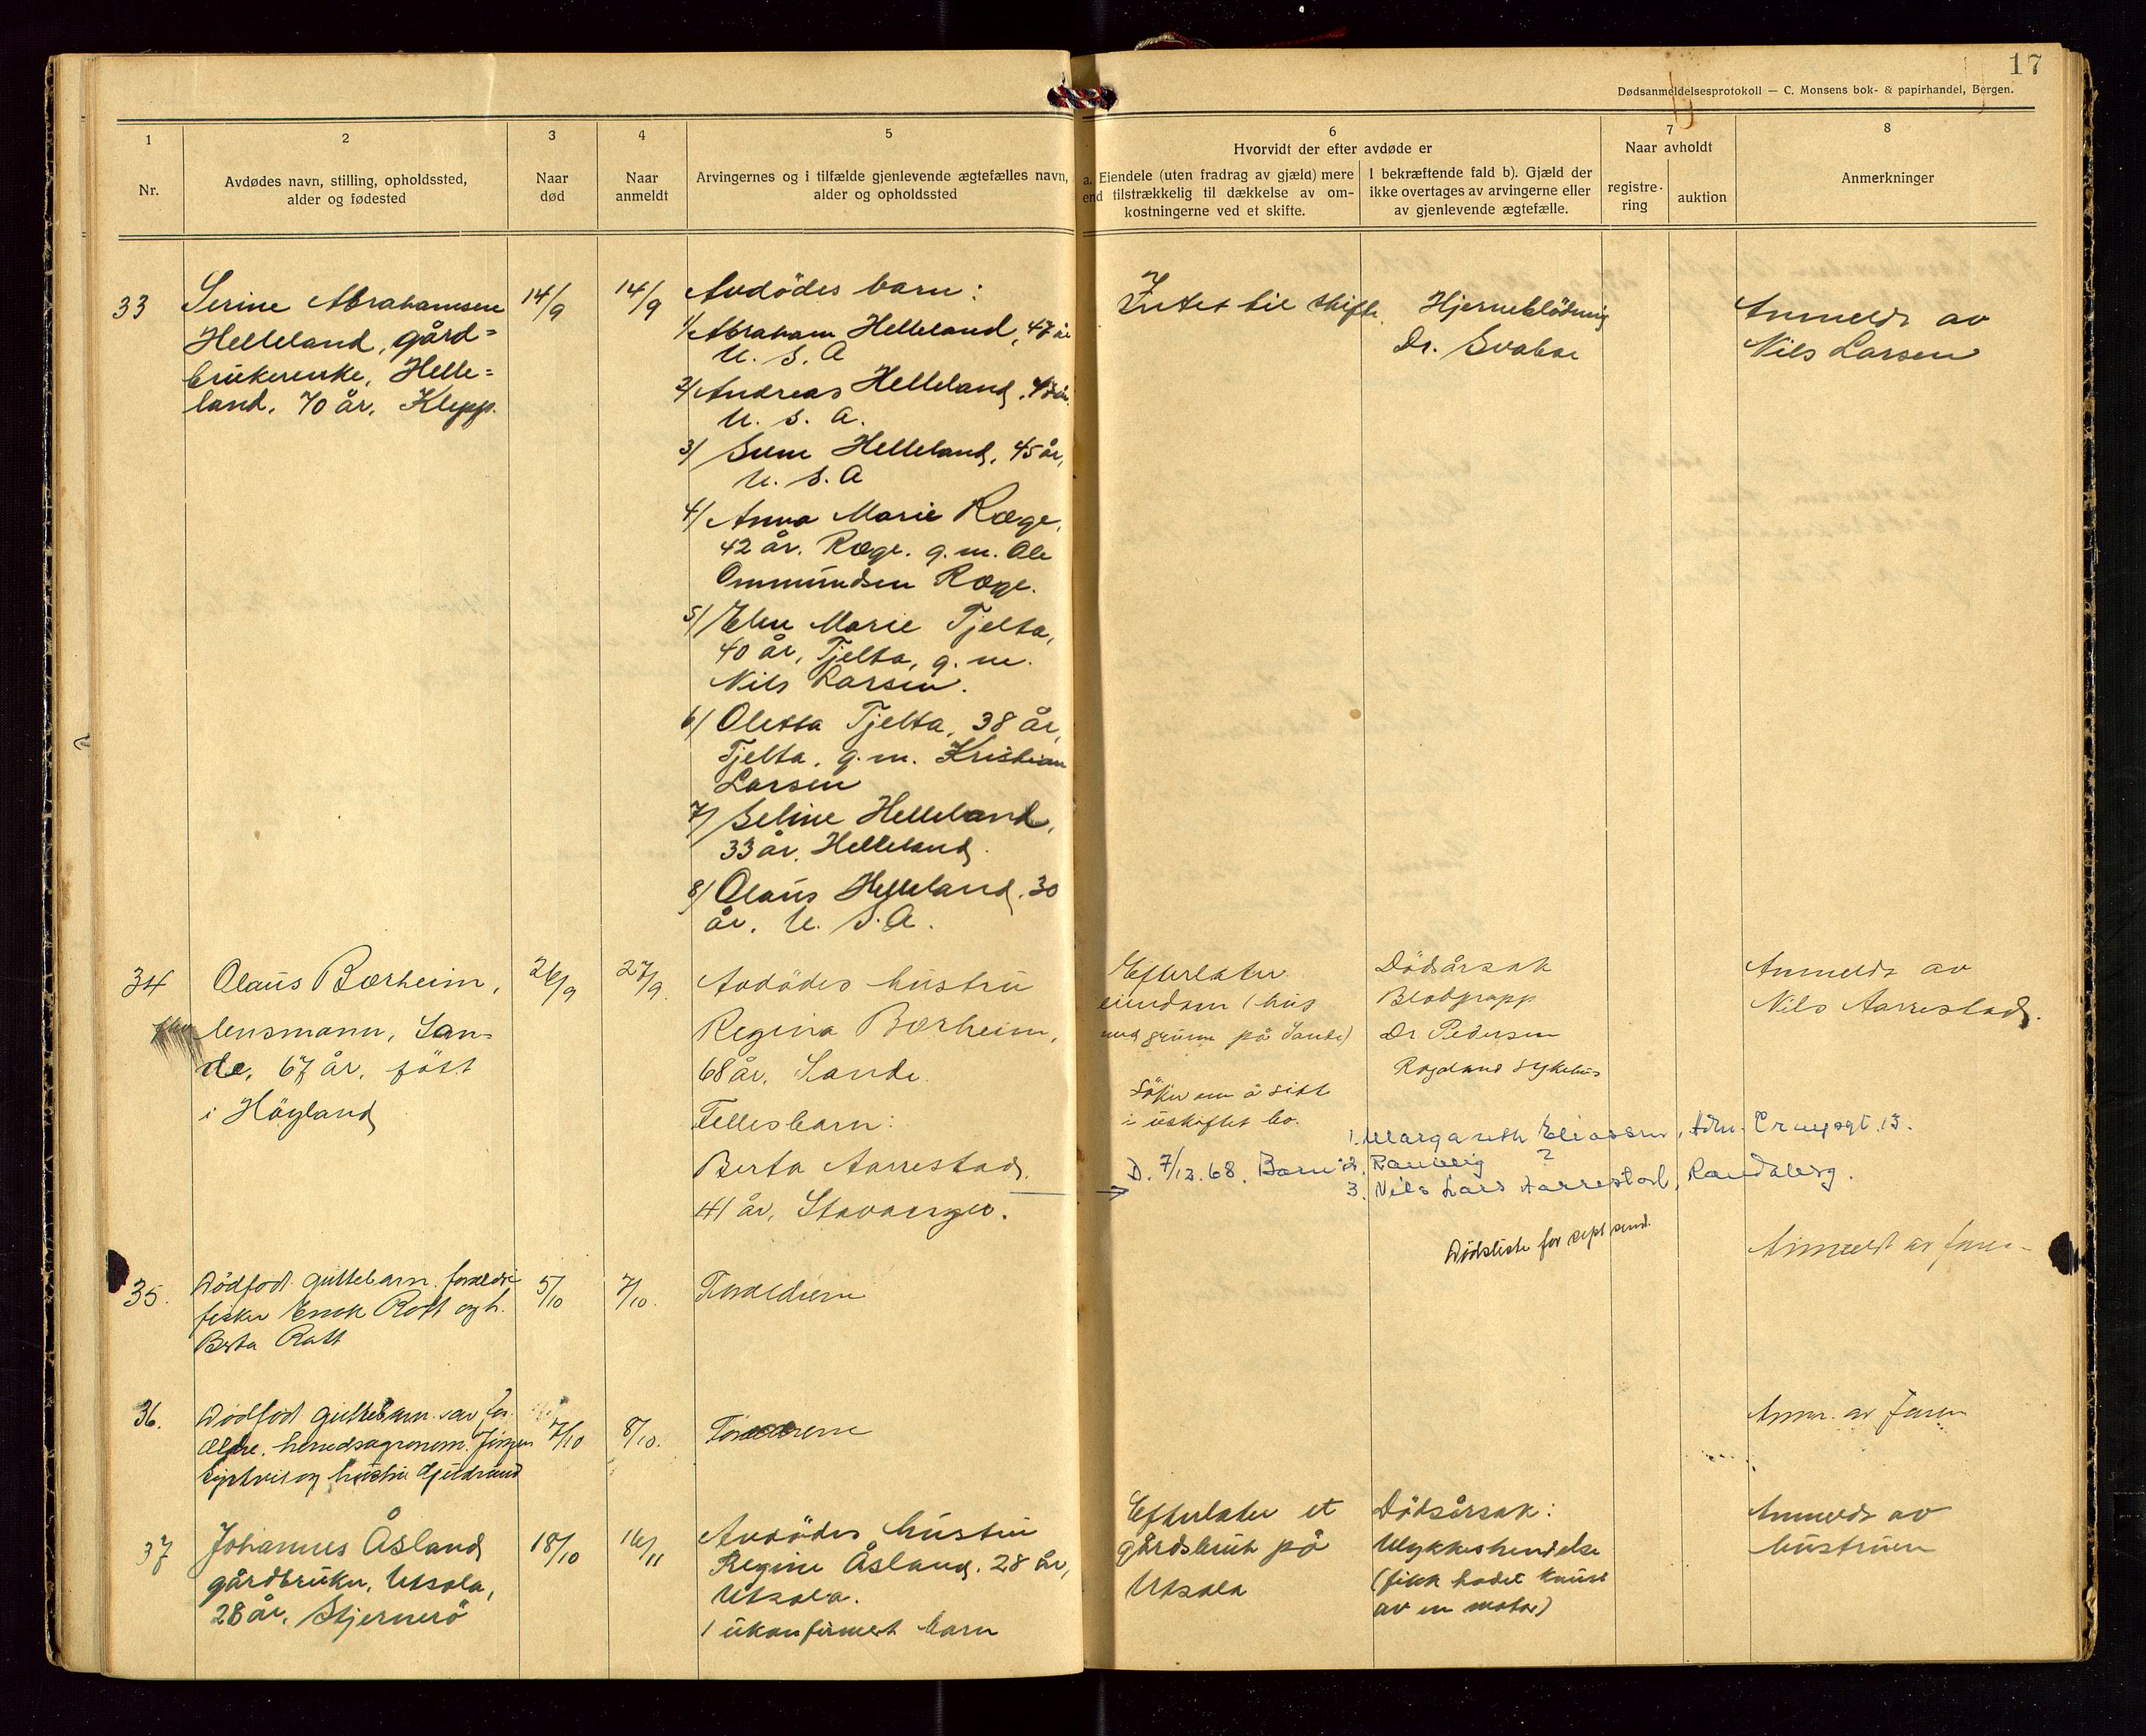 17
Dødsanmeldelsesprotokoll — C. Monsens bok- & papirhandel, Bergen.
1
Nr.
2
Avdødes navn, stilling, opholdssted,
alder og fødested
3
Naar
død
4
Naar
anmeldt
5
Arvingernes og i tilfælde gjenlevende ægtefælles navn,
alder og opholdssted
6
Hvorvidt der efter avdøde er
a. Eiendele (uten fradrag av gjæld) mere
end tilstrækkelig til dækkelse av om-
kostningerne ved et skifte.
I bekræftende fald b). Gjæld der
ikke overtages av arvingerne eller
av gjenlevende ægtefælle.
7
Naar avholdt
registre-
ring
auktion
8
Anmerkninger
33
Serine Abrahamsen
Helleland, gård=
brukerenke, Helle=
land. 70 år. Klepp.
14/9
14/9
Avdödes barn:
1/ Abraham Helleland, 47 år
U. S. A
2/ Andreas Helleland,
U. S. A.
3/ Helleland, 45 år,
U. S. A
4/ Anna Marie Ræge,
42 år. Ræge. g. m. Ole
Ommundsen Ræge.
5/ Marie Tjelta,
40 år, Tjelta, g. m.
Nils Larsen.
6/ Oletta Tjelta, 38 år,
Tjelta, g. m. Kristian
Larsen
7/ Seline Helleland,
33 år. Helleland.
8/ Olaus Helleland. 30
år. U. S. A.
Intet til skifte.
Hjerneblödning
Dr. Svaboe
Anmeldt av
Nils Larsen
34
Olaus Borheim,
lensmann, San-
de, 67 år, föst
i Höyland
26/9
27/9.
Avdödes hustru
Regina Borheim,
68 år. Sande.
Fellesbarn:
Berta Aarrestad,
41 år, Stavanger.
Efterlater
eiendom (hus
med grunn på Sande)
Söker om å sitte
i uskiftet bo.
Dödsårsak
Blodpropp
Dr Pedersen
Rogaland sykehus
Anmeldt av
Nils Aarrestad.
1. Margareth Eliassen,
D. 7/12.68. Barn: 2. Rannveig ?
3. Nils Lars Aarrestad, Randaberg.
Dödsliste for sept send.
35.
Dödfödt guttebarn. foreldre
fisker Enok Rott og h.
Berta Rott
5/10
7/10.
Foreldrene
Anmeldt av faren
36.
Dödfödt guttebarn av for-
eldre. herredsagronom
og hustru Gjertrud
7/10
8/10.
Foreldrene
Anm. av faren
37
Johannes Åsland
gårdbruker, Utsola,
28 år. Stjernerö
18/10
16/11
Avdödes hustru
Regine Åsland. 28 år,
Utsola.
1 ukonfirmert barn
Efterlater et
gårdsbruk på
Utsola
Dödsårsak:
Ulykkeshendelse
(fikk hodet knust
av en motor)
Anmeldt av
hustruen